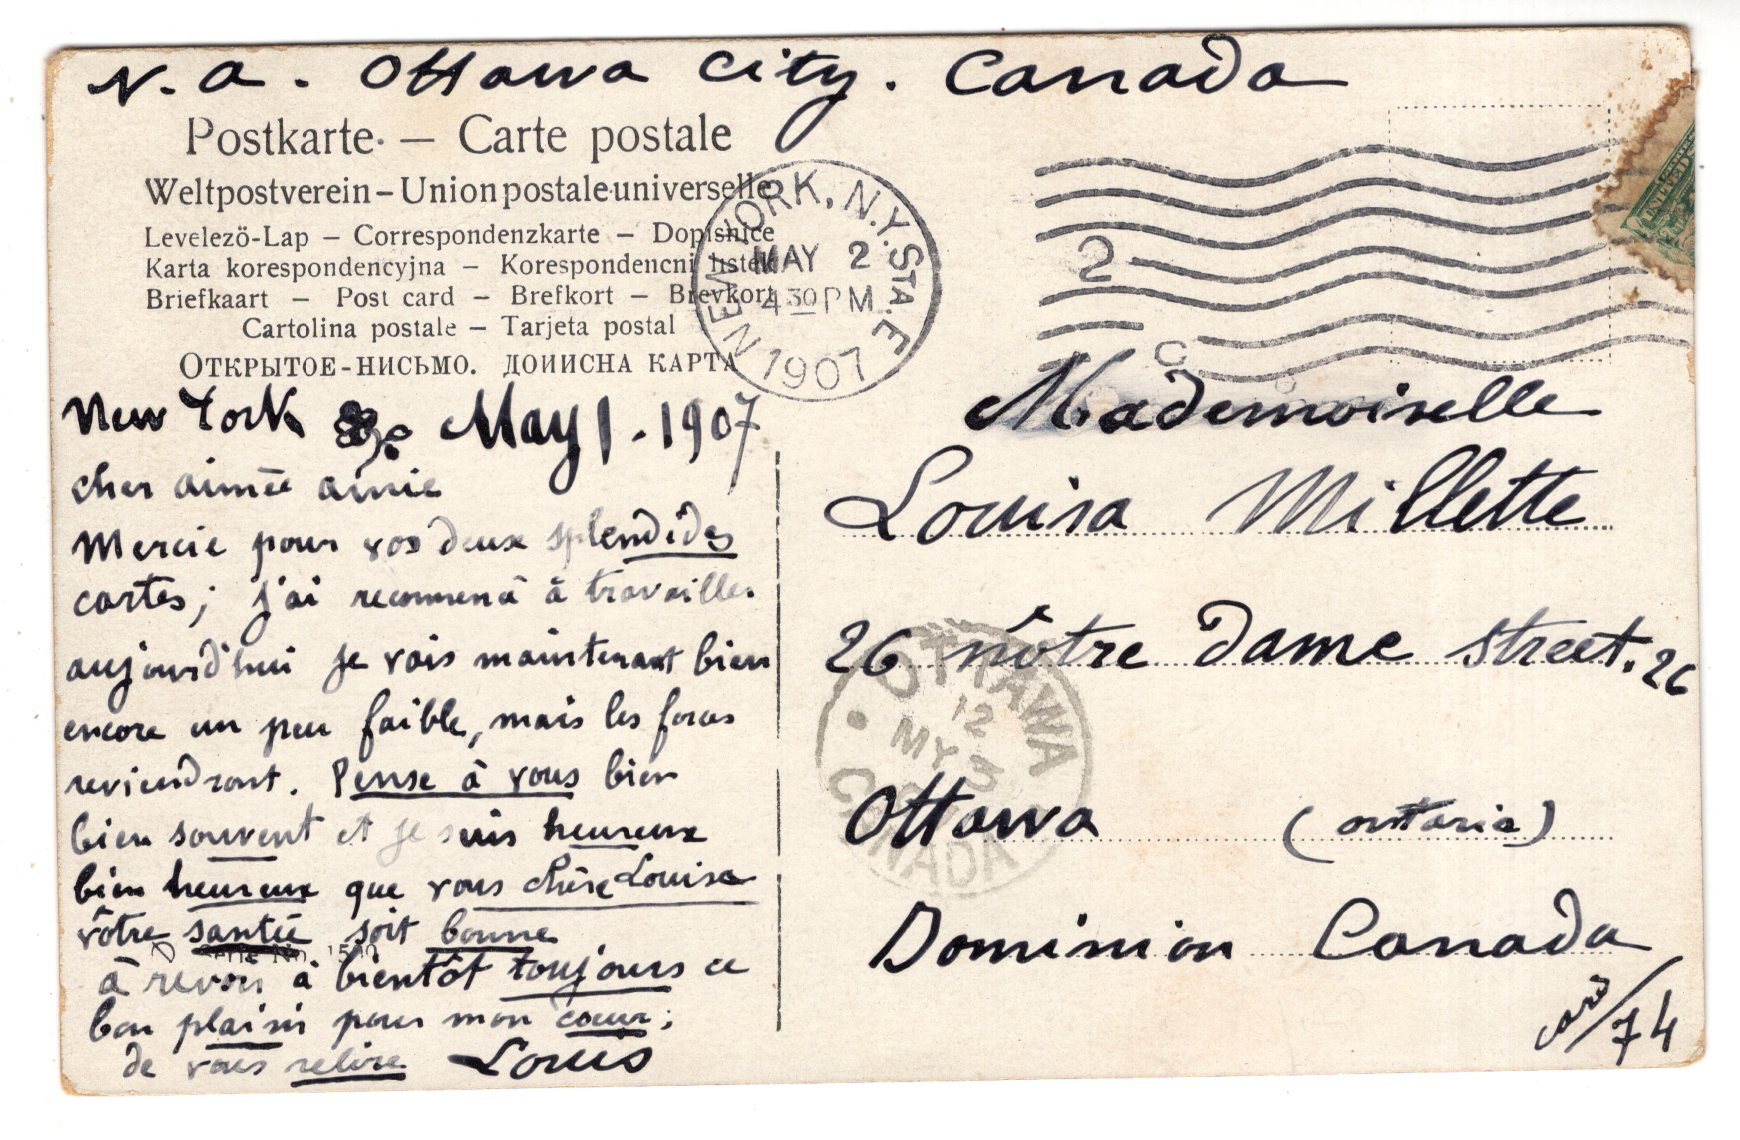 N. A. Ottawa City. Canada
Postkarte. — Carte postale
Weltpostverein – Union postale universelle
Levelező-Lap – Correspondenzkarte – Dopisnice
Karta korespondencyjna – Korespondencni listek
Briefkaart – Post card – Brefkort – Brevkort
Cartolina postale – Tarjeta postal
ОТКРЫТОЕ-НИСЬМО. ДОИИСНА КАРТА
NEW YORK, N.Y. STA. E
MAY 2
4 30 PM
1907
2
C
UNITED
New York May 1. 1907
cher aimée amie
Mercie pour vos deux splendides
cartes; j'ai recommenā à travailler
aujourd'hui je vais maintenant bien
encore un peu faible, mais les forces
reviendront. Pense à vous bien
bien souvent et je suis heureux
bien heureux que vous chère Louise
vôtre santée soit bonne
à revoir à bientôt toujours ce
bon plaisir pour mon coeur;
de vous relire Louis
Mademoiselle
Louisa Millette
26 nôtre Dame street. 26
Ottawa (ontario)
Dominion Canada
OTTAWA
12
MY 3
CANADA
card/74